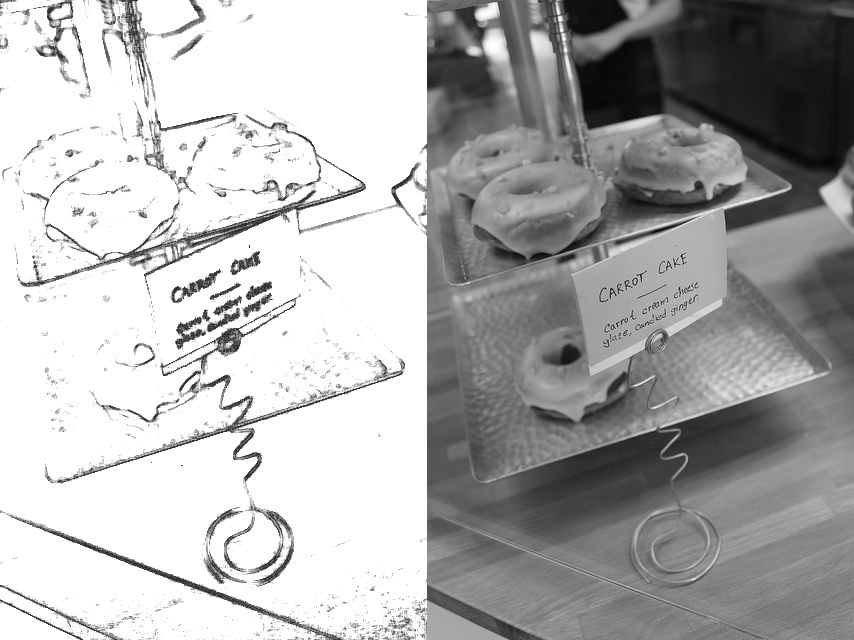 CARROT CAKE
Carrot cream cheese
glaze, candied ginger.
CARROT CAKE
Carrot cream cheese
glaze, candied ginger.